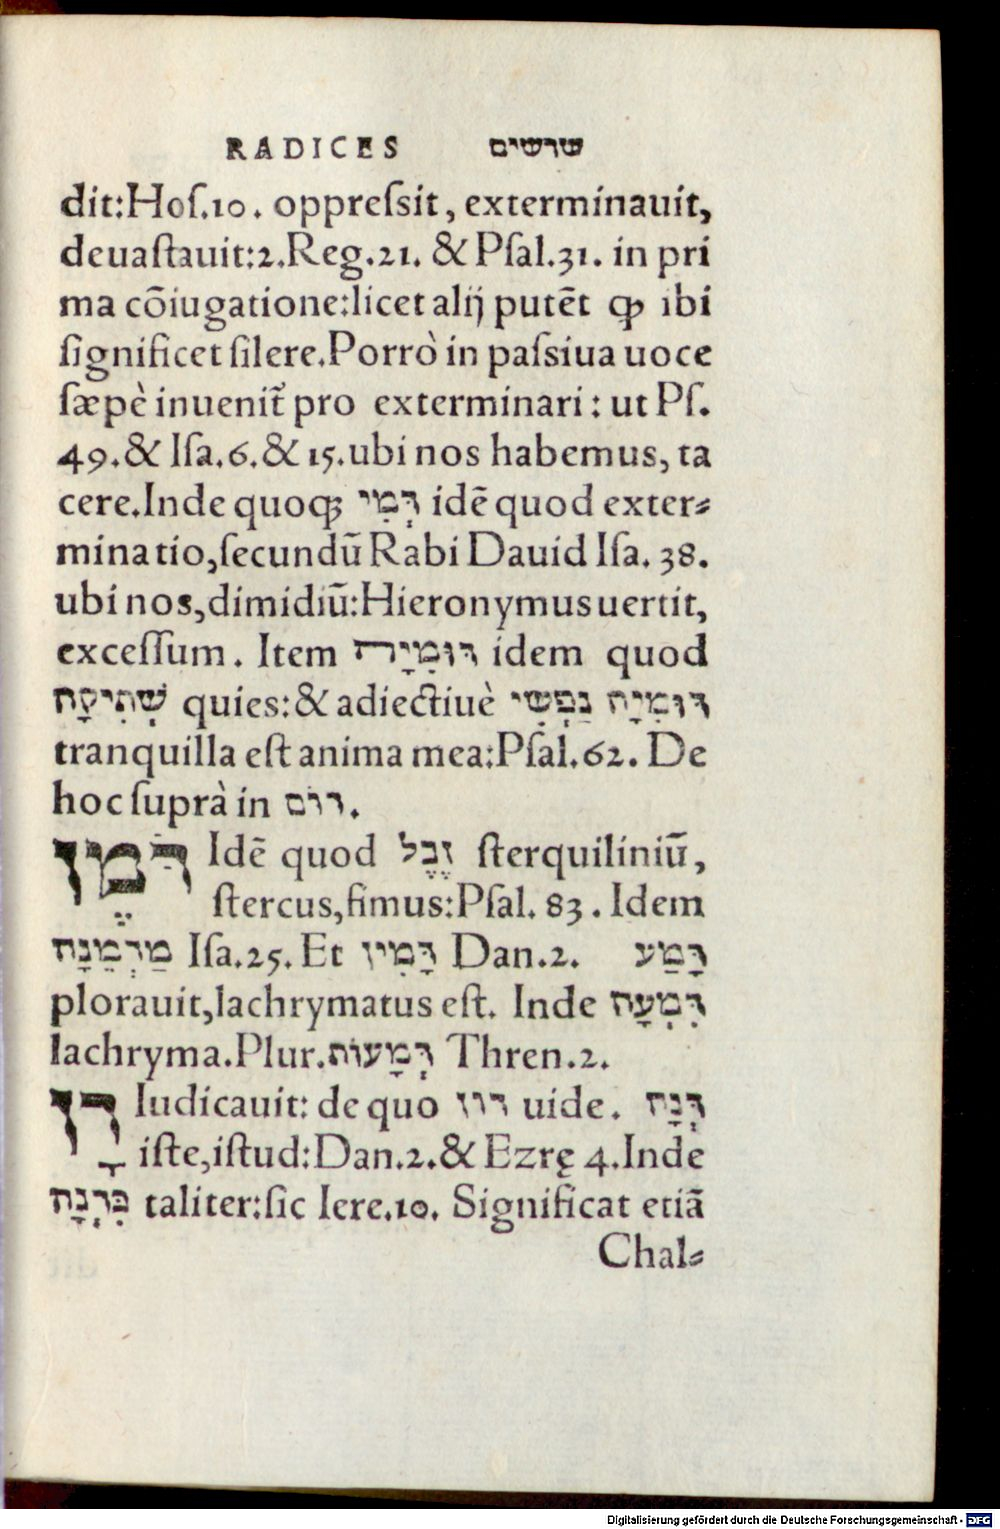 RADICES שרשים
dit:Hoſ.10. oppreſsit, exterminauit,
deuaſtauit:2.Reg.21. & Pſal.31. in pri
ma cōiugatione:licet alij putēt ꝙ ibi
ſignificet ſilere.Porrò in paſsiua uoce
ſæpè inuenit᷑ pro exterminari: ut Pſ.
49.& Iſa.6.& 15.ubi nos habemus, ta
cere.Inde quoqꝫ דְּמִי idē quod exter⸗
minatio,ſecundū Rabi Dauid Iſa. 38.
ubi nos,dimidiū:Hieronymus uertit,
exceſſum. Item דּוּמִיָּה idem quod
שְׁתִיקָה quies:& adiectiuè דּוּמִיָּה נַפְשִׁי
tranquilla eſt anima mea:Pſal.62. De
hoc ſuprà in דום.
דֹּמֶן Idē quod זֶבֶל ſterquiliniū,
ſtercus,fimus:Pſal. 83. Idem
מַדְמֵנָה Iſa.25. Et דָּמִין Dan.2. דָּמַע
plorauit,lachrymatus eſt. Inde דִּמְעָה
lachryma.Plur.דְּמָעוֹת Thren.2.
דָּן Iudicauit: de quo דון uide. דְּנָה
iſte,iſtud:Dan.2.& Ezrę 4.Inde
כִּדְנָה taliter:ſic Iere.10. Significat etiā
Chal⸗
Digitalisierung gefördert durch die Deutsche Forschungsgemeinschaft - DFG